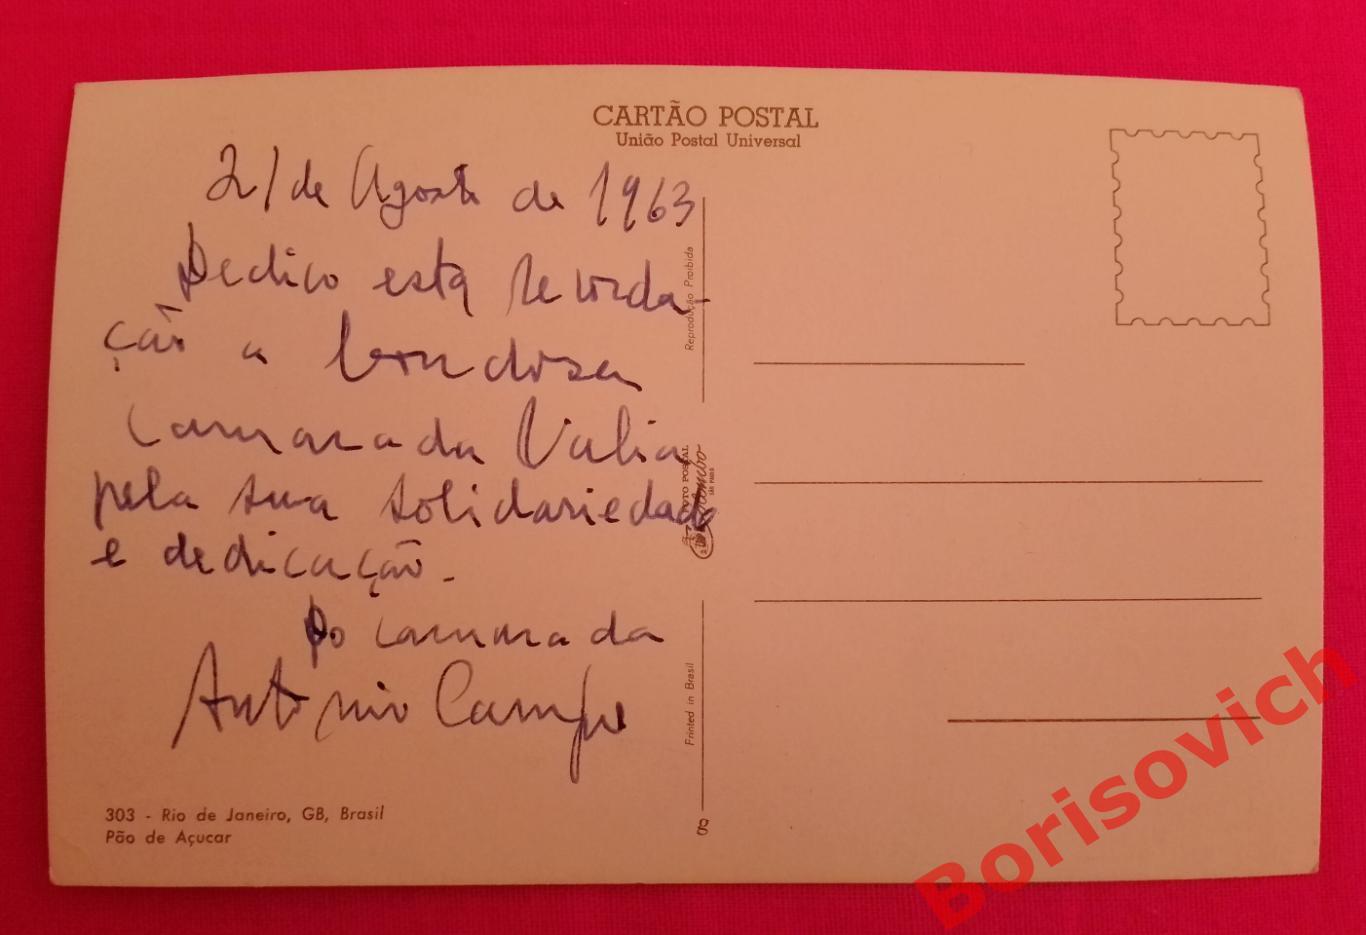 CARTÃO POSTAL
União Postal Universal
21 de Agosto de 1963
Dedico esta recorda-
ção a bondosa
camarada Valia
pela sua solidariedade
e dedicação.
Do camarada
António Campos
303 - Rio de Janeiro, GB, Brasil
Pão de Açucar
Reprodução Proibida
FOTO POSTAL
Colombo
SÃO PAULO
Printed in Brasil
g
Borisovich